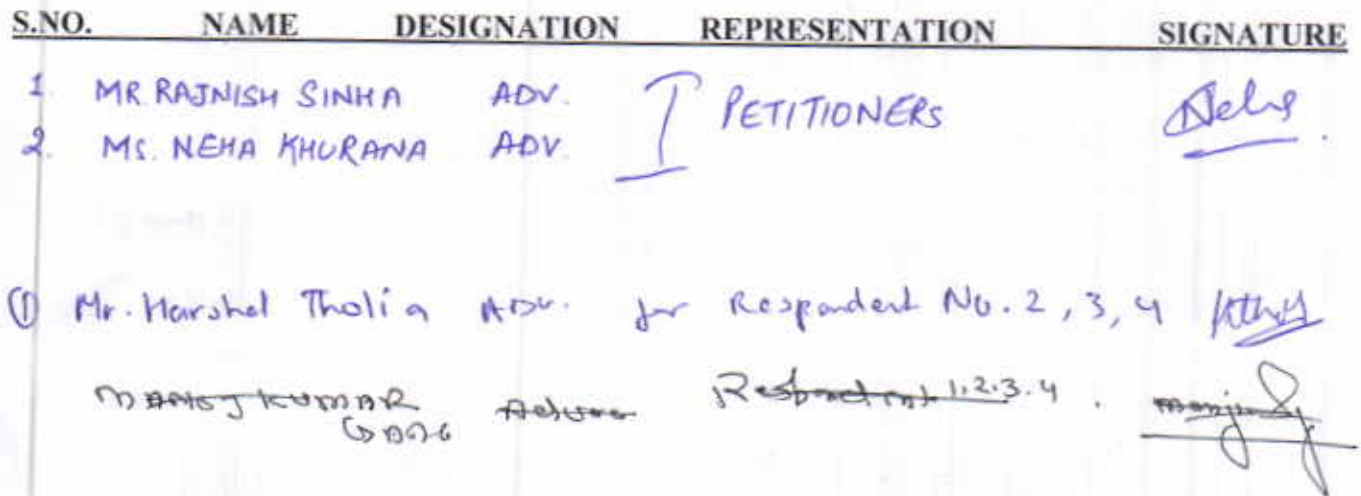 S.NO. NAME DESIGNATION REPRESENTATION SIGNATURE
1. MR RAJNISH SINHA ADV. PETITIONERS Neha
2. MS. NEHA KHURANA ADV.
① Mr. Harshal Tholia ADV. for Respondent No. 2, 3, 4
MANOJ KUMAR Respondent 1.2.3.4.